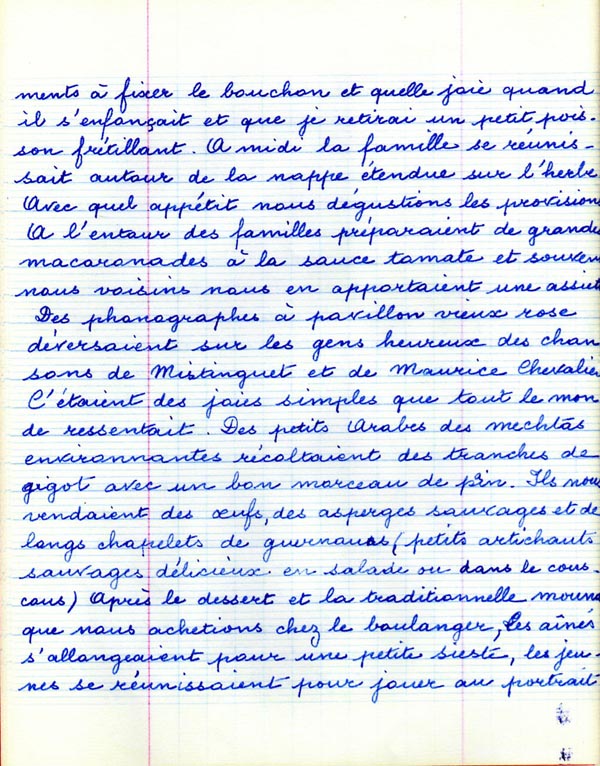 ments à fixer le bouchon et quelle joie quand
il s'enfonçait et que je retirai un petit pois-
son frétillant. A midi la famille se réunis-
sait autour de la nappe étendue sur l'herbe
Avec quel appétit nous dégustions les provision
A l'entour des familles préparaient de grande
macaronades à la sauce tomate et souven
nous voisins nous en apportaient une assiet
Des phonographes à pavillon vieux rose
déversaient sur les gens heureux des chan
sons de Mistinguet et de Maurice Chevalie
C'étaient des joies simples que tout le mon
de ressentait. Des petits Arabes des mechtas
environnantes récoltaient des tranches de
gigot avec un bon morceau de pin. Ils nou
vendaient des œufs, des asperges sauvages et de
longs chapelets de (petits artichauts
sauvages délicieux en salade ou dans le cous-
cous) Après le dessert et la traditionnelle mouna
que nous achetions chez le boulanger, les aînés
s'allongeaient pour une petite sieste, les jeu-
nes se réunissaient pour jouer au portrait